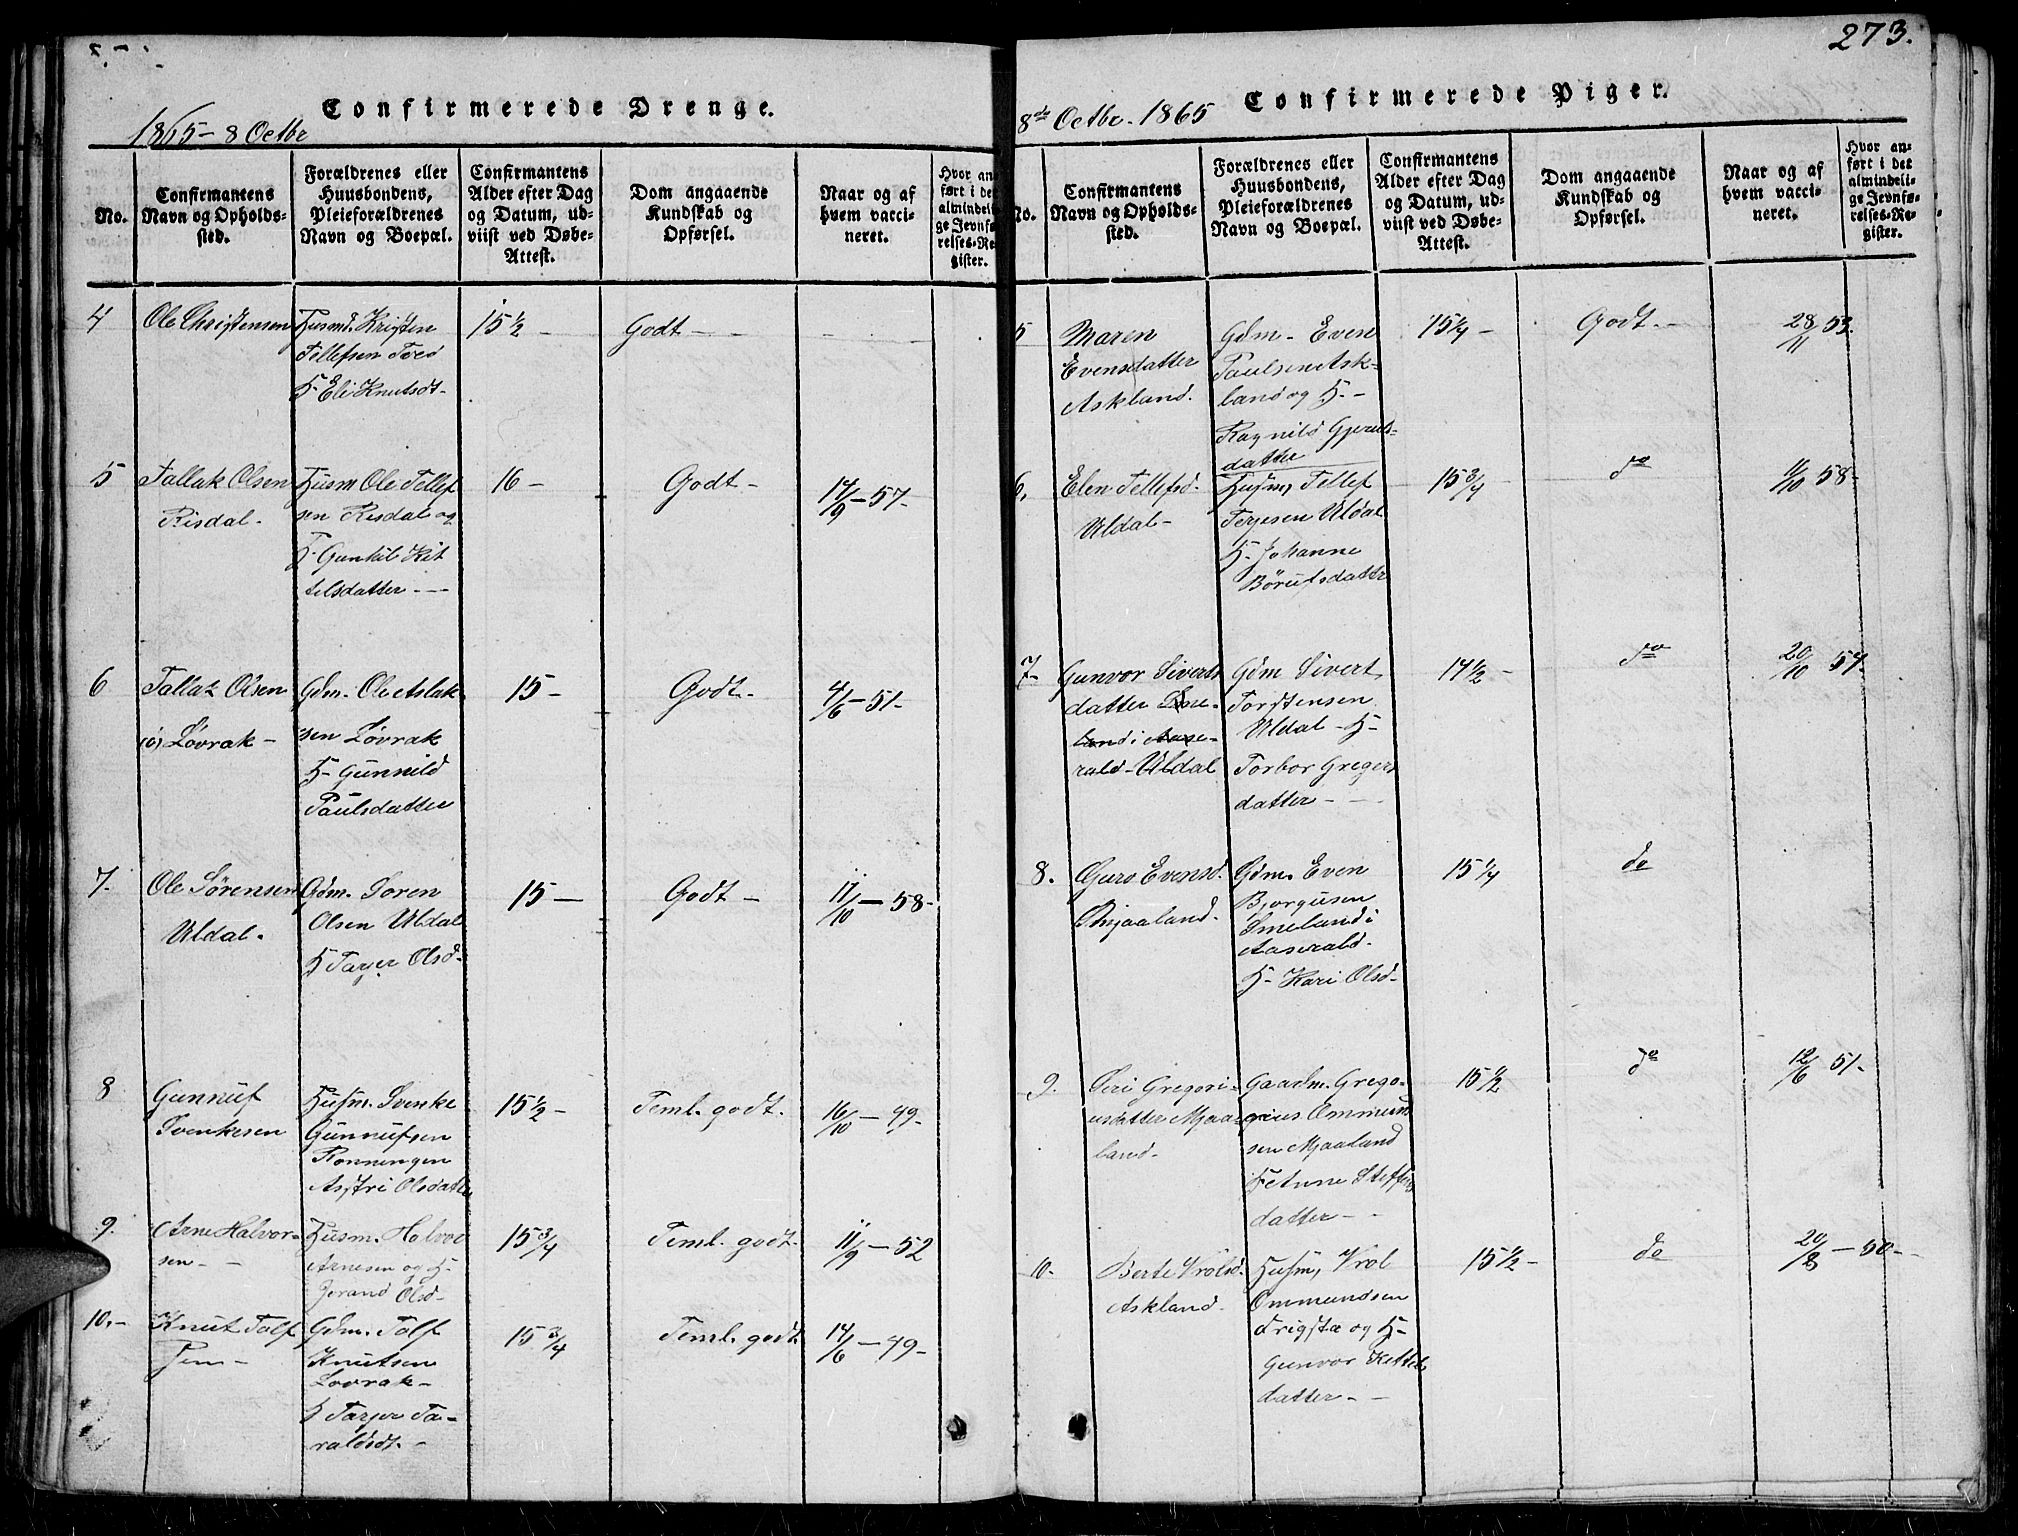 273.
Confirmerede Drenge.
1865 - 8 Octbr
No.
Confirmantens
Navn og Opholds-
sted.
Forældrenes eller
Huusbondens,
Pleieforældrenes
Navn og Boepæl.
Confirmantens
Alder efter Dag
og Datum, ud-
viist ved Døbe-
Attest.
Dom angaaende
Kundskab og
Opførsel.
Naar og af
hvem vacci-
neret.
Hvor an-
ført i det
almindeli-
ge Jevnfø-
relses-Re-
gister.
4
Ole Christensen
Husmd. Kristen
Tellefsen
H. Eli Knutsdt-
15½ -
Godt -
5
Tallak Olsen
Risdal -
Husm Ole Tellef
sen Risdal og
H- Gunhil Kit
telsdatter -
16 -
Godt -
14/9 - 57 -
6
Tallak Olsen
Lövrak -
Gdm. Ole Aslak
sen Lövrak
H- Gunnild
Paulsdatter
15 -
Godt -
4/6 - 51 -
7.
Ole Sörensen
Uldal.
Gdm. Soren
Olsen Uldal
H Tarjer Olsd -
15 -
Godt -
11/10 - 58 -
8
Gunnuf
Svenkesen
Husm. Svenke
Gunnufsen
Ronningen
Astri Olsdatter
15½ -
Teml. godt.
16/10 - 49 -
9.
Arne Halvor-
sen -
Husm. Halvor
Arnesen og H-
Jorand Olsd -
15¾
Teml. godt.
11/9 - 52
10. -
Knut Tolf
sen -
Gdm. Tolf
Knutsen
Lovrak -
H Tarjer Ta-
raldsdt. -
15¾
Teml. godt
14/6 - 49 -
Confirmerede Piger.
8de Octbr. 1865
No.
Confirmantens
Navn og Opholds-
sted.
Forældrenes eller
Huusbondens,
Pleieforældrenes
Navn og Boepæl.
Confirmantens
Alder efter Dag
og Datum, ud-
viist ved Døbe-
Attest.
Dom angaaende
Kundskab og
Opførsel.
Naar og af
hvem vacci-
neret.
Hvor an-
ført i det
almindeli-
ge Jevnfø-
relses-Re-
gister.
5
Maren
Evensdatter
Askland.
Gdm - Even
Paulsen Ask-
land og H -
Ragnild
datter
15¼ -
Godt. -
28/11 53.
6,
Elen Tellefsd.
Uldal -
Husm, Tellef
Terjesen Uldal
H- Johanne
Börufsdatter
15¾
do
11/10 58 -
7 -
Gunvor Siverts
datter Sme-
land i Aase-
rald - Uldal
Gdm Sivert
Torstensen
Uldal - H -
Torbor Gregers
datter -
14½ -
do
20/10 57 -
8.
Guro Evensd.
Mjaaland.
Gdm. Even
Bjorgusen
Smeland i
Aaserald -
H- Kari Olsd -
15¼
do
9.
Siri Gregori-
usdatter Mjaa-
land -
Gaardm. Grego-
rius Ommun
sen Mjaaland
H Anne Steffens
datter -
15½
do
12/6 51 -
10 -
Berte Vrolsd.
Askland -
Husm, Vrol
Ommundsen
og H -
Gunvor Kittels
datter -
15½ -
do
20/8 - 50 -